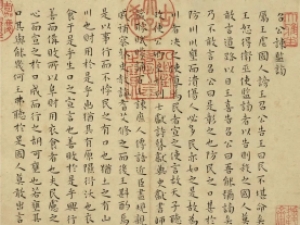 召公諫監謗
厲王虐國人謗王召公告王曰民不堪命矣
王怒得衛巫使監謗者以告則殺之國人莫
敢言道路以目王喜告召公曰吾能弭謗矣
乃不敢言召公曰是彰之也防民之口甚於
防川川壅而潰傷人必多民亦如之是故為
川者決之使導為民者宣之使言故天子聽
政使公卿至於列士獻詩瞽獻典史獻書師
諫庶人傳語近臣盡規親
戚補察瞽史教誨耆艾修之而後王斟酌焉
是以事行而不悖民之有口也猶土之有山
川也財用於是乎出猶其有原隰衍沃也衣
食於是乎生口之宣言也善敗於是乎興行
善而備敗所以阜財用衣食者也夫民慮之
心而宣之於口成而行之胡可壅也若壅其
口其與能幾何王弗聽於是國人莫敢出言